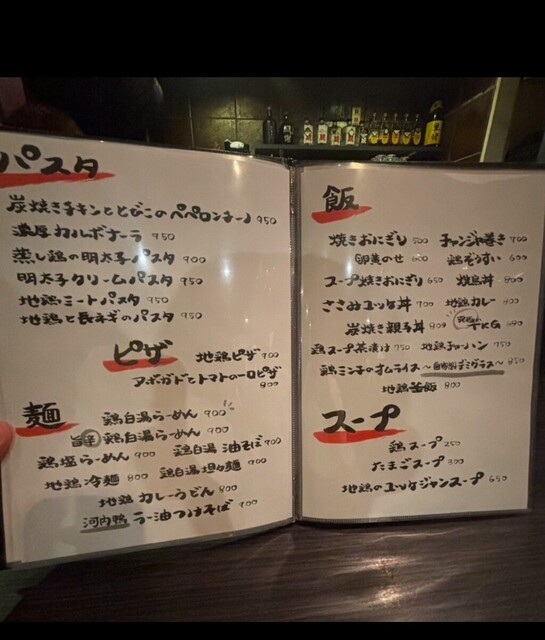 パスタ
炭焼きチキンととびこのペペロンチーノ 950
濃厚カルボナーラ 950
蒸し鶏の明太子パスタ 900
明太子クリームパスタ 950
地鶏ミートパスタ 950
地鶏と長ネギのパスタ 950
ピザ
地鶏ピザ 900
アボガドとトマトの一口ピザ
800
麺
鶏白湯らーめん 900
旨辛 鶏白湯らーめん 900
鶏塩らーめん 900 鶏白湯 油そば 900
地鶏 冷麺 800 鶏白湯 坦々麺 900
地鶏 カレーうどん 800
河内鴨 ラー油つけそば 900
飯
焼きおにぎり 500 チャンジャ巻き 700
卵黄のせ 600 鶏ぞうすい 600
スープ焼きおにぎり 650 焼鳥丼 800
ささみユッケ丼 900 地鶏カレー 800
炭焼き親子丼 TKG
鶏スープ茶漬け 750 地鶏チャーハン 750
鶏ミンチのオムライス 〜自家製デミグラス〜 850
地鶏釜飯 800
スープ
鶏スープ 250
たまごスープ 300
地鶏のユッケジャンスープ 650